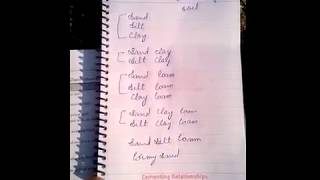 soil
Sand
Silt
Clay
Sand clay
Silt Clay
Sand loam
Silt loam
Clay loam
Sand Clay loam
Silt Clay loam
Sand Silt loam
loamy Sand
Cementing Relationships